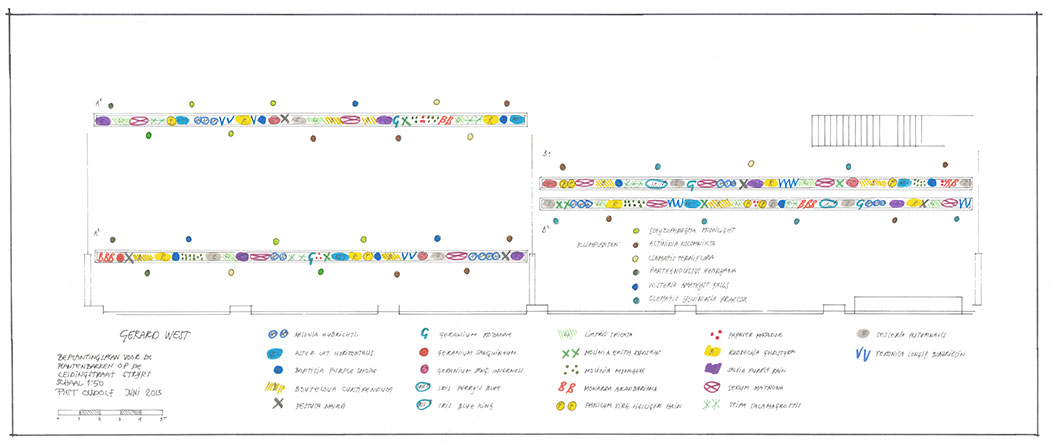 A¹
B¹
A²
B²
KLIMPLANTEN
ACTINIDIA KOLOMIKTA
CLEMATIS TERNIFLORA
PARTHENOCISSUS HENRYANA
WISTERIA AMETHYST FALLS
GERARD WEST
BEPLANTINGSPLAN VOOR DE
PLANTENBAKKEN OP DE
LEIDINGSTRAAT STRIJP S
SCHAAL 1:50
PIET OUDOLF JUNI 2013
AMSONIA HUBRICHTII
ASTER LAT. HORIZONTALIS
BAPTISIA PURPLE SMOKE
BOUTELOUA CURTIPENDULA
FESTUCA MAIREI
GERANIUM
GERANIUM SANGUINEUM
GERANIUM SANG.
IRIS PERRY'S BLUE
IRIS BLUE KING
LIATRIS SPICATA
MOLINIA EDITH DUDSZUS
MOLINIA MOORHEXE
MONARDA BRADBURIANA
PANICUM VIRG. HEILIGER HAIN
PAPAVER MATADOR
SALVIA PURPLE RAIN
SEDUM MATRONA
STIPA CALAMAGROSTIS
SESLERIA AUTUMNALIS
VERONICA LONGIF.